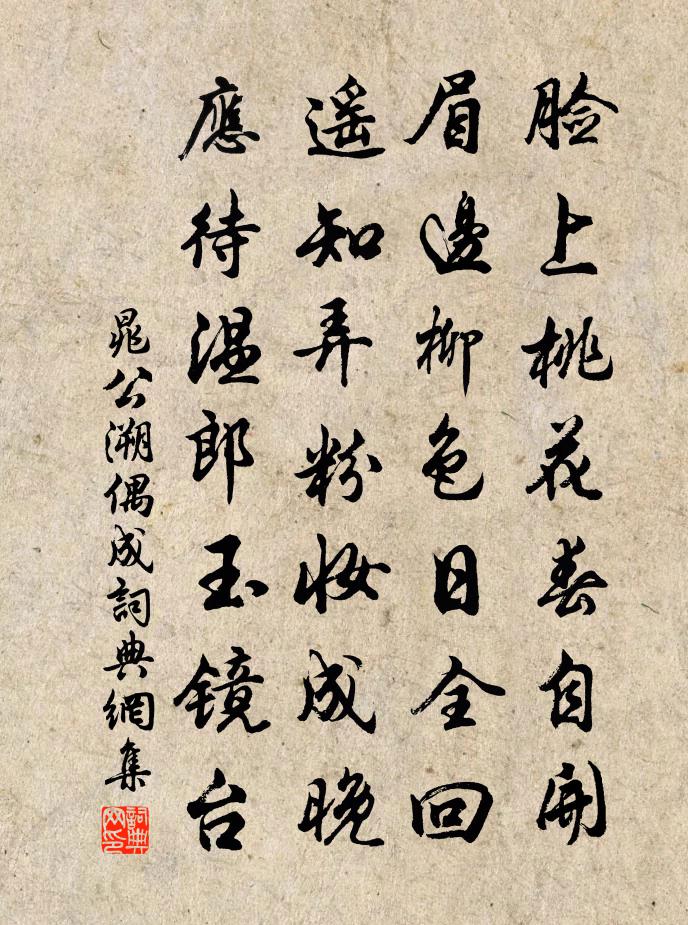 脸上桃花春自開
眉邊柳色日全回
遥知弄粉妆成晚
應待温郎玉镜台
晁公溯偶成詞典網集
詞典网印